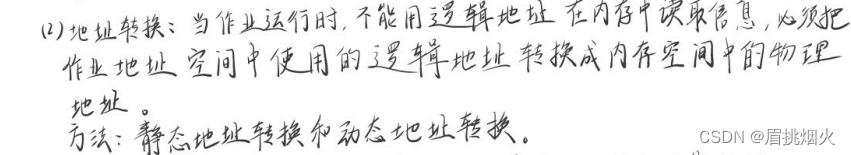 (2)地址转换：当作业运行时，不能用逻辑地址在内存中读取信息，必须把
作业地址空间中使用的逻辑地址转换成内存空间中的物理
地址。
方法：静态地址转换和动态地址转换。
CSDN @眉挑烟火